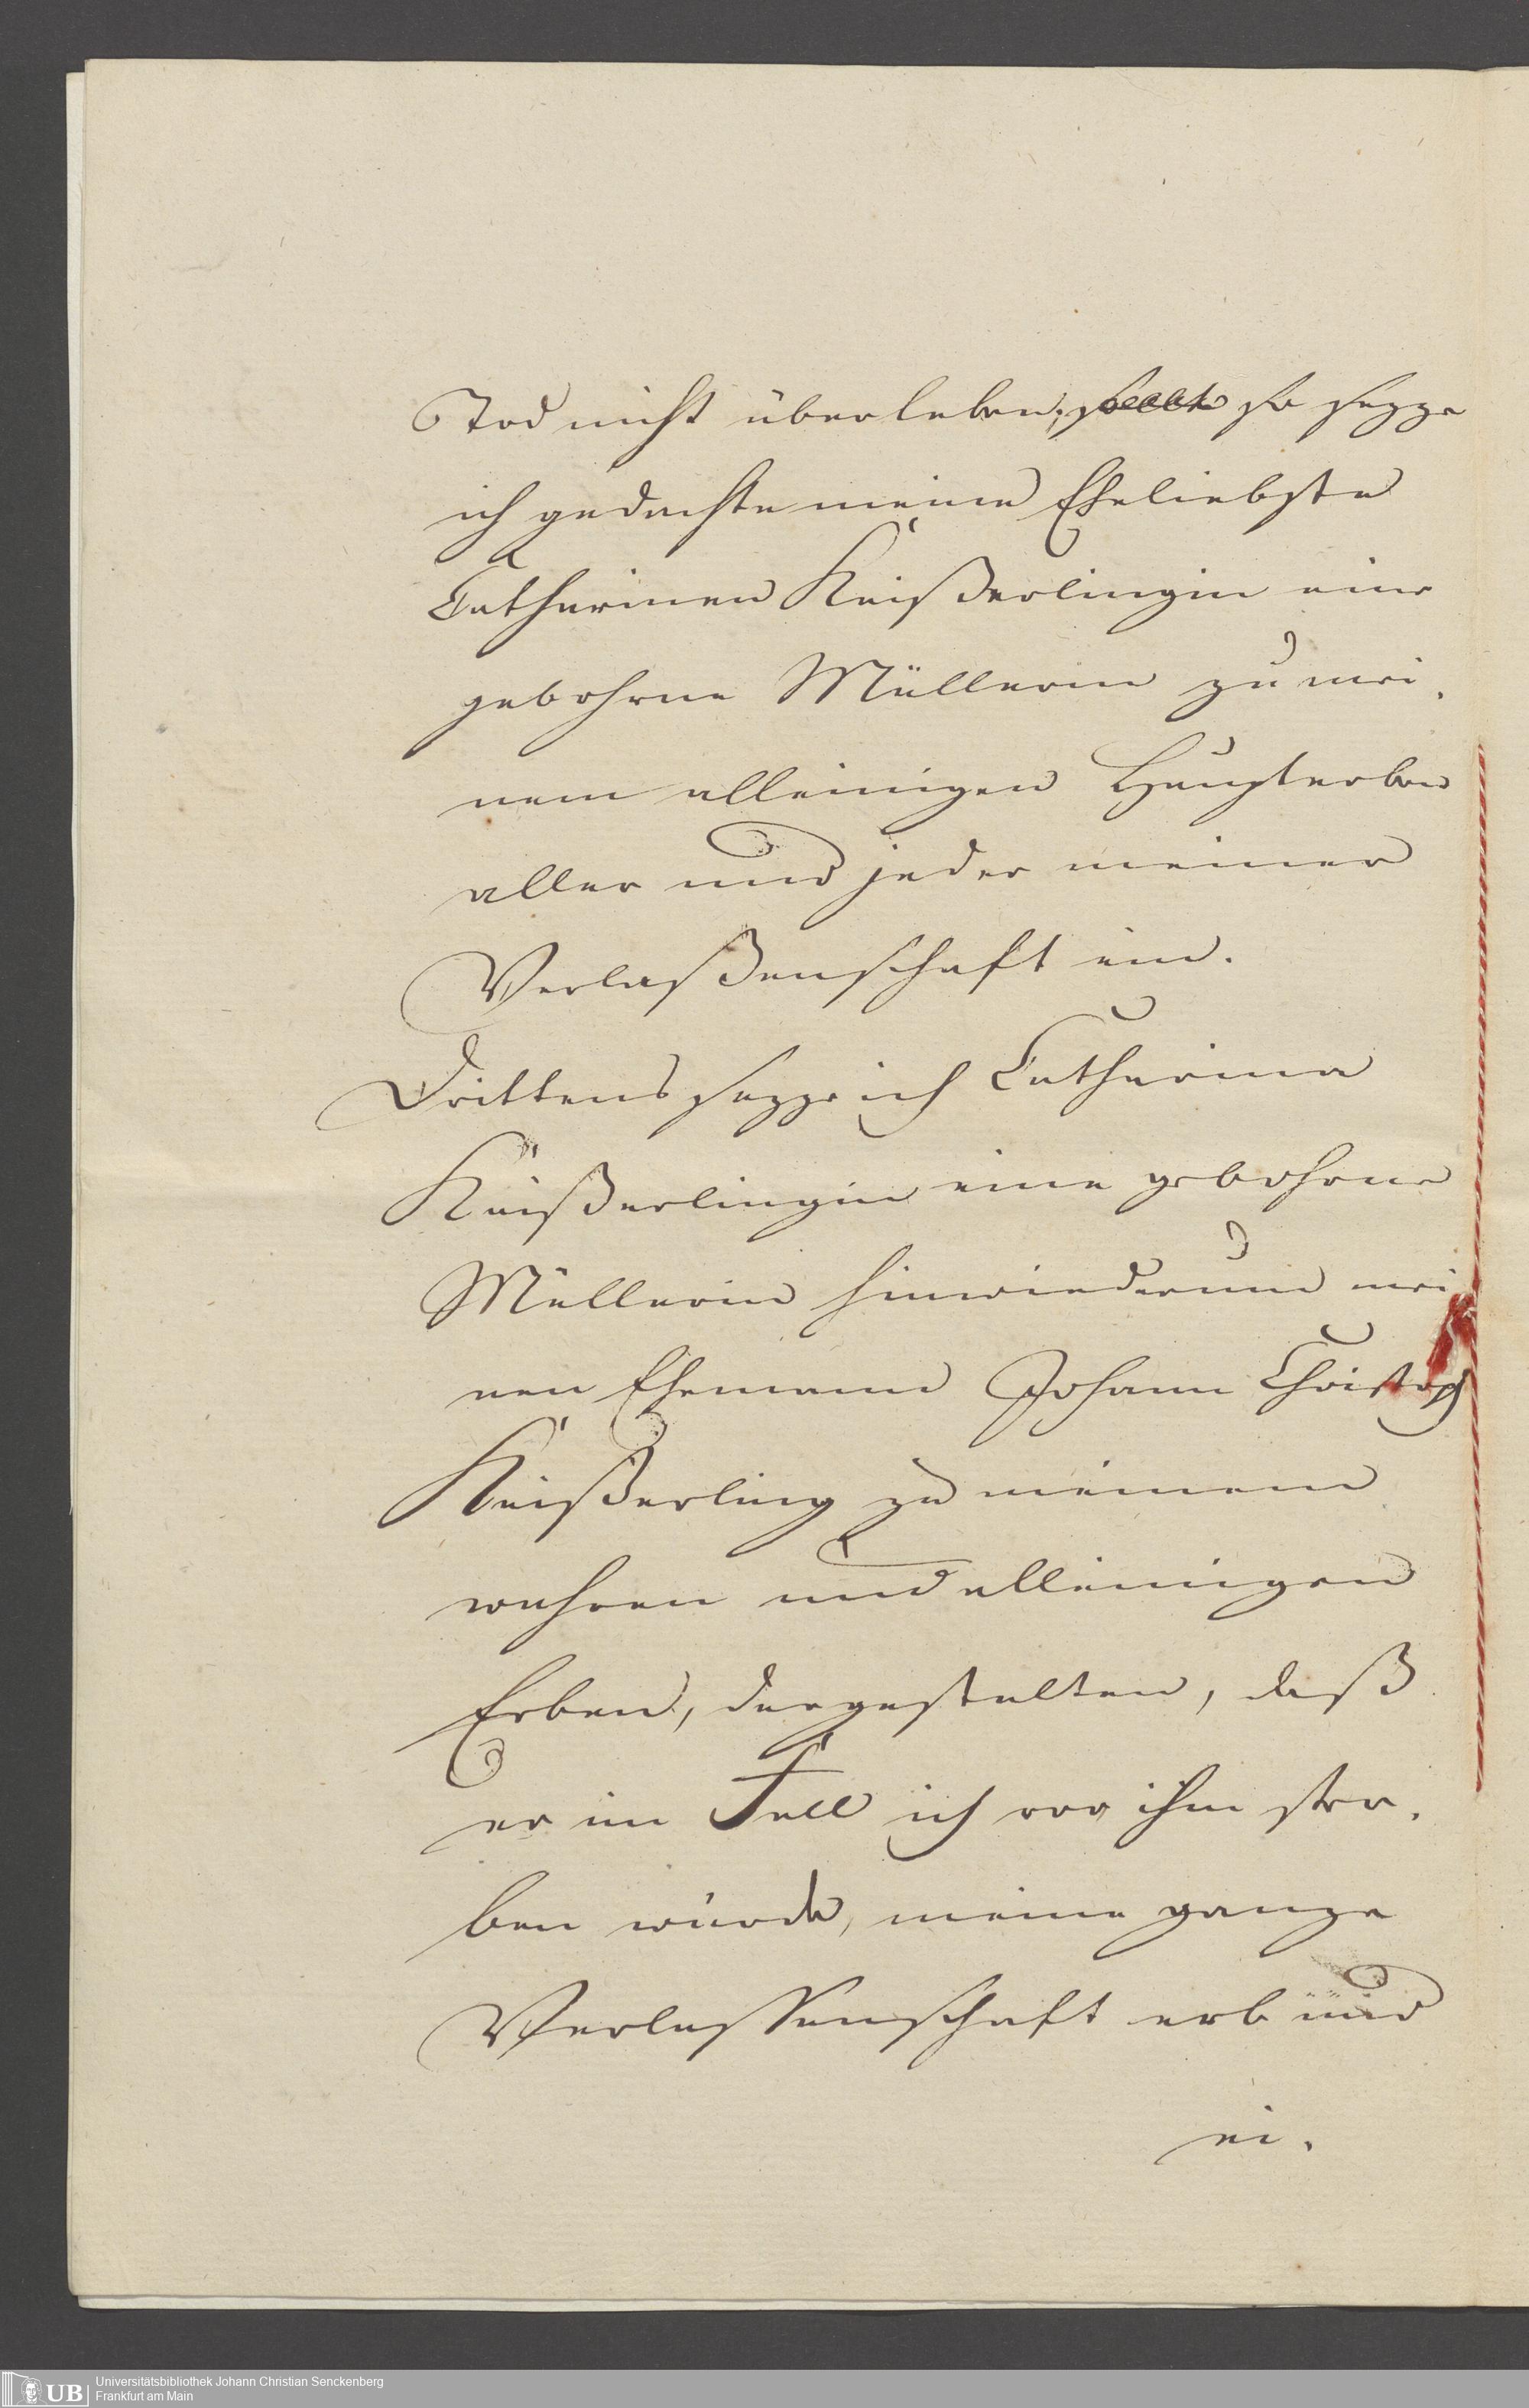 Tod nicht überleben; sollte so sezze
ich gedachte meine Eheliebste
Catharinen Keißerlingin eine
gebohrne Müllerin zu mei,
nem alleinigen Haupterben
aller und jeder meiner
Verlaßenschaft ein.
Drittens sezze ich Catharina
Keißerlingin eine gebohrne
Müllerin hinwiederum mei
nen Ehemann Johann Christoph
Keißerling zu meinem
wahren und alleinigen
Erben, dergestalten, daß
er im Fall ich vor ihm ster,
ben würde, meine ganze
Verlassenschaft erb und
ei,
UB Universitätsbibliothek Johann Christian Senckenberg
Frankfurt am Main